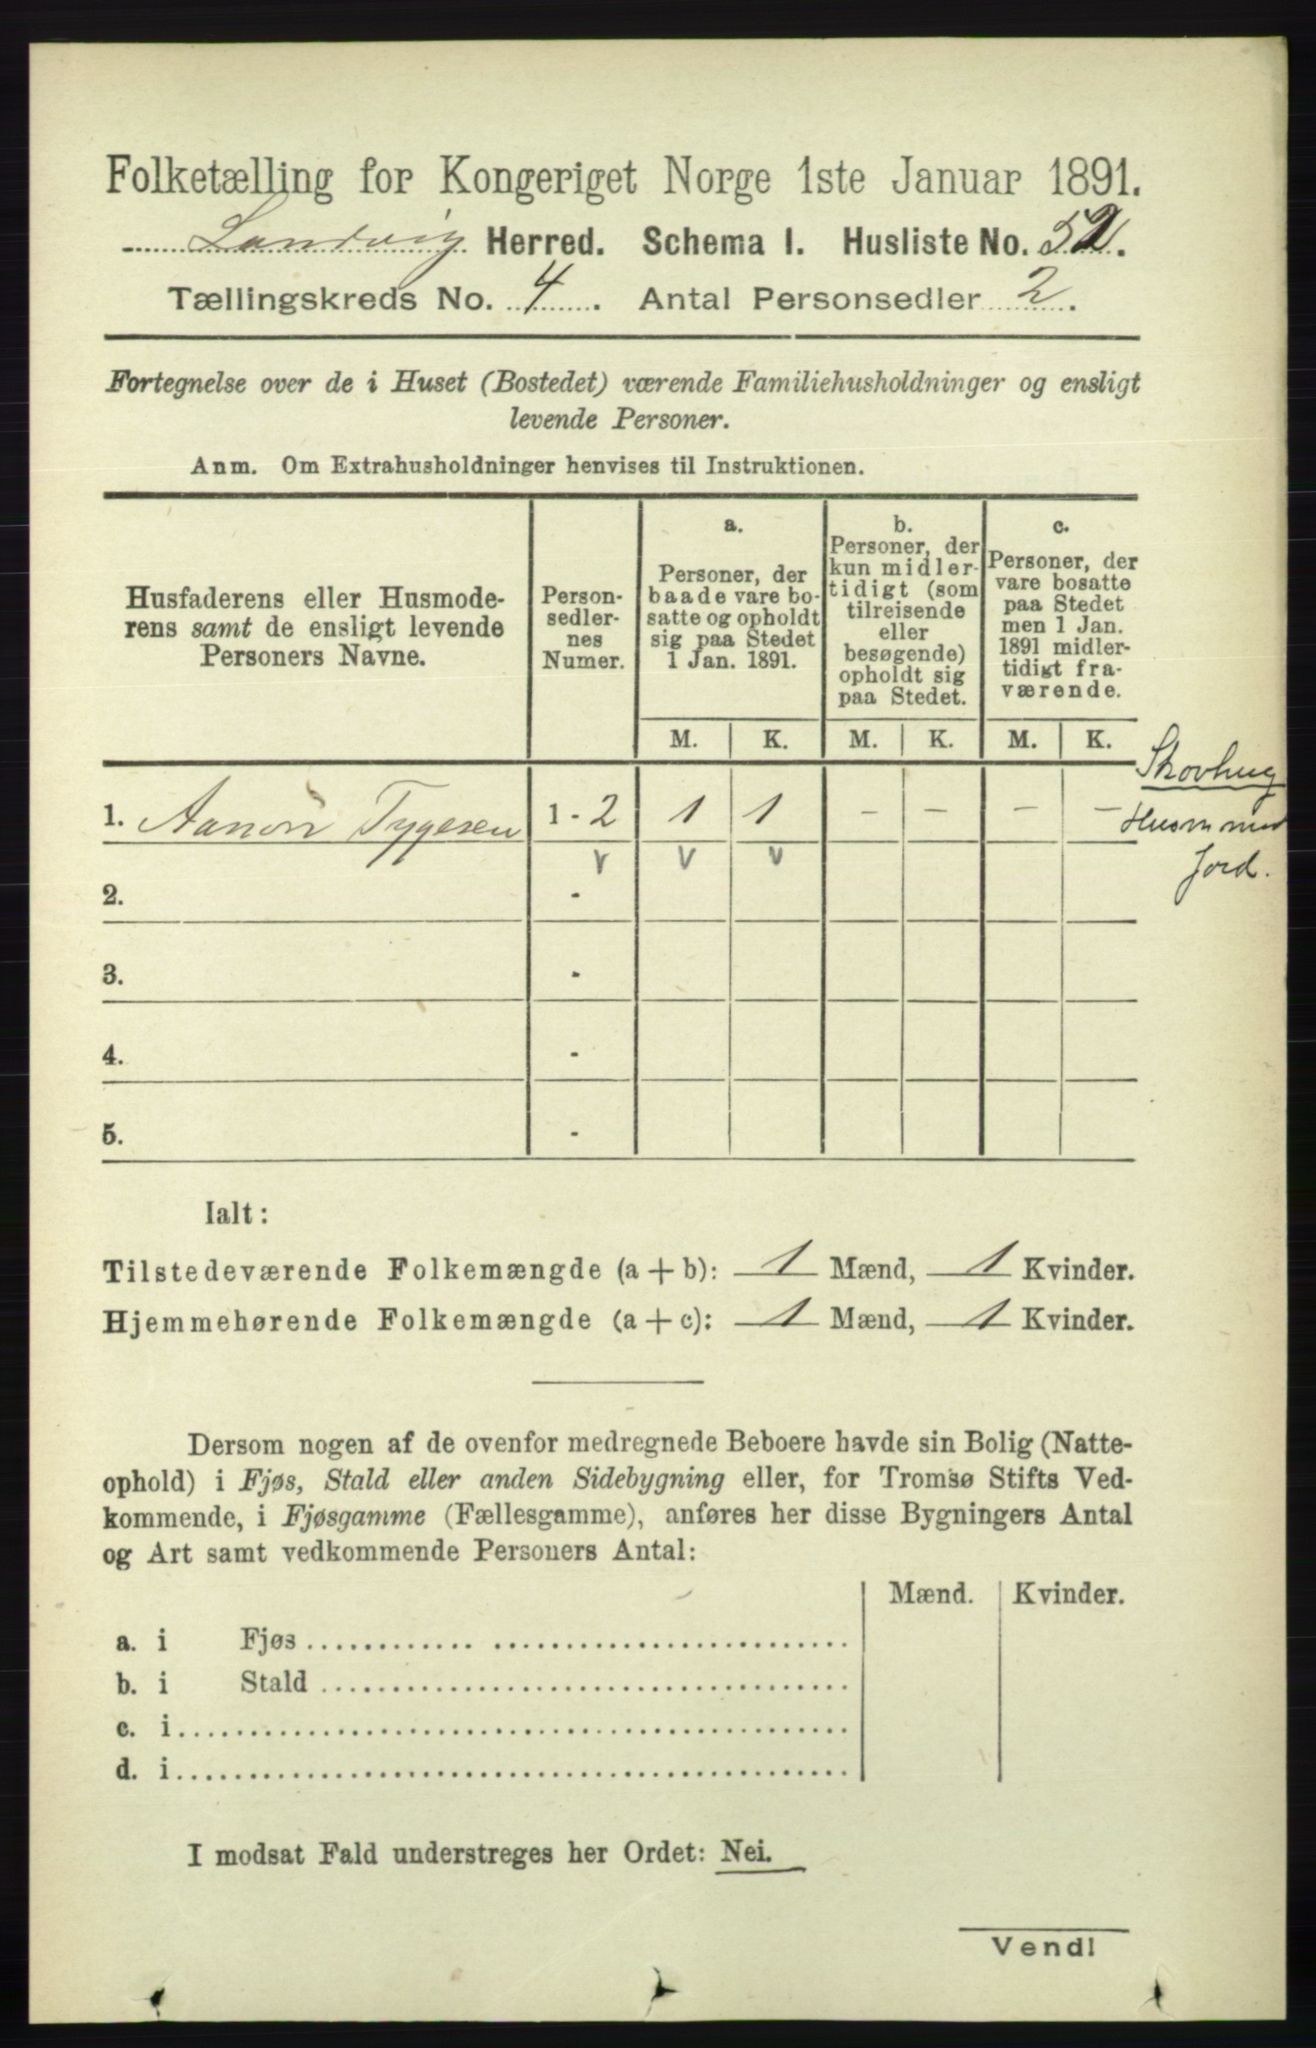 Folketælling for Kongeriget Norge 1ste Januar 1891.
Landvig Herred. Schema I. Husliste No. 52.
Tællingskreds No. 4. Antal Personsedler 2.
Fortegnelse over de i Huset (Bostedet) værende Familiehusholdninger og ensligt
levende Personer.
Anm. Om Extrahusholdninger henvises til Instruktionen.
Husfaderens eller Husmode-
rens samt de ensligt levende
Personers Navne.
Person-
sedler-
nes
Numer.
a.
Personer, der
baade vare bo-
satte og opholdt
sig paa Stedet
1 Jan. 1891.
b.
Personer, der
kun midler-
tidigt (som
tilreisende
eller
besøgende)
opholdt sig
paa Stedet.
c.
Personer, der
vare bosatte
paa Stedet
men 1 Jan.
1891 midler-
tidigt fra-
værende.
M. K. M. K. M. K.
Skovhug
1. Aanon Tygesen 1 - 2 1 1 - - - -
Husm med
Jord.
v v v
2. -
3. -
4. -
5. -
Ialt:
Tilstedeværende Folkemængde (a + b): 1 Mænd, 1 Kvinder.
Hjemmehørende Folkemængde (a + c): 1 Mænd, 1 Kvinder.
Dersom nogen af de ovenfor medregnede Beboere havde sin Bolig (Natte-
ophold) i Fjøs, Stald eller anden Sidebygning eller, for Tromsø Stifts Ved-
kommende, i Fjøsgamme (Fællesgamme), anføres her disse Bygningers Antal
og Art samt vedkommende Personers Antal:
Mænd. Kvinder.
a. i Fjøs
b. i Stald
c. i
d. i
I modsat Fald understreges her Ordet: Nei.
Vend!